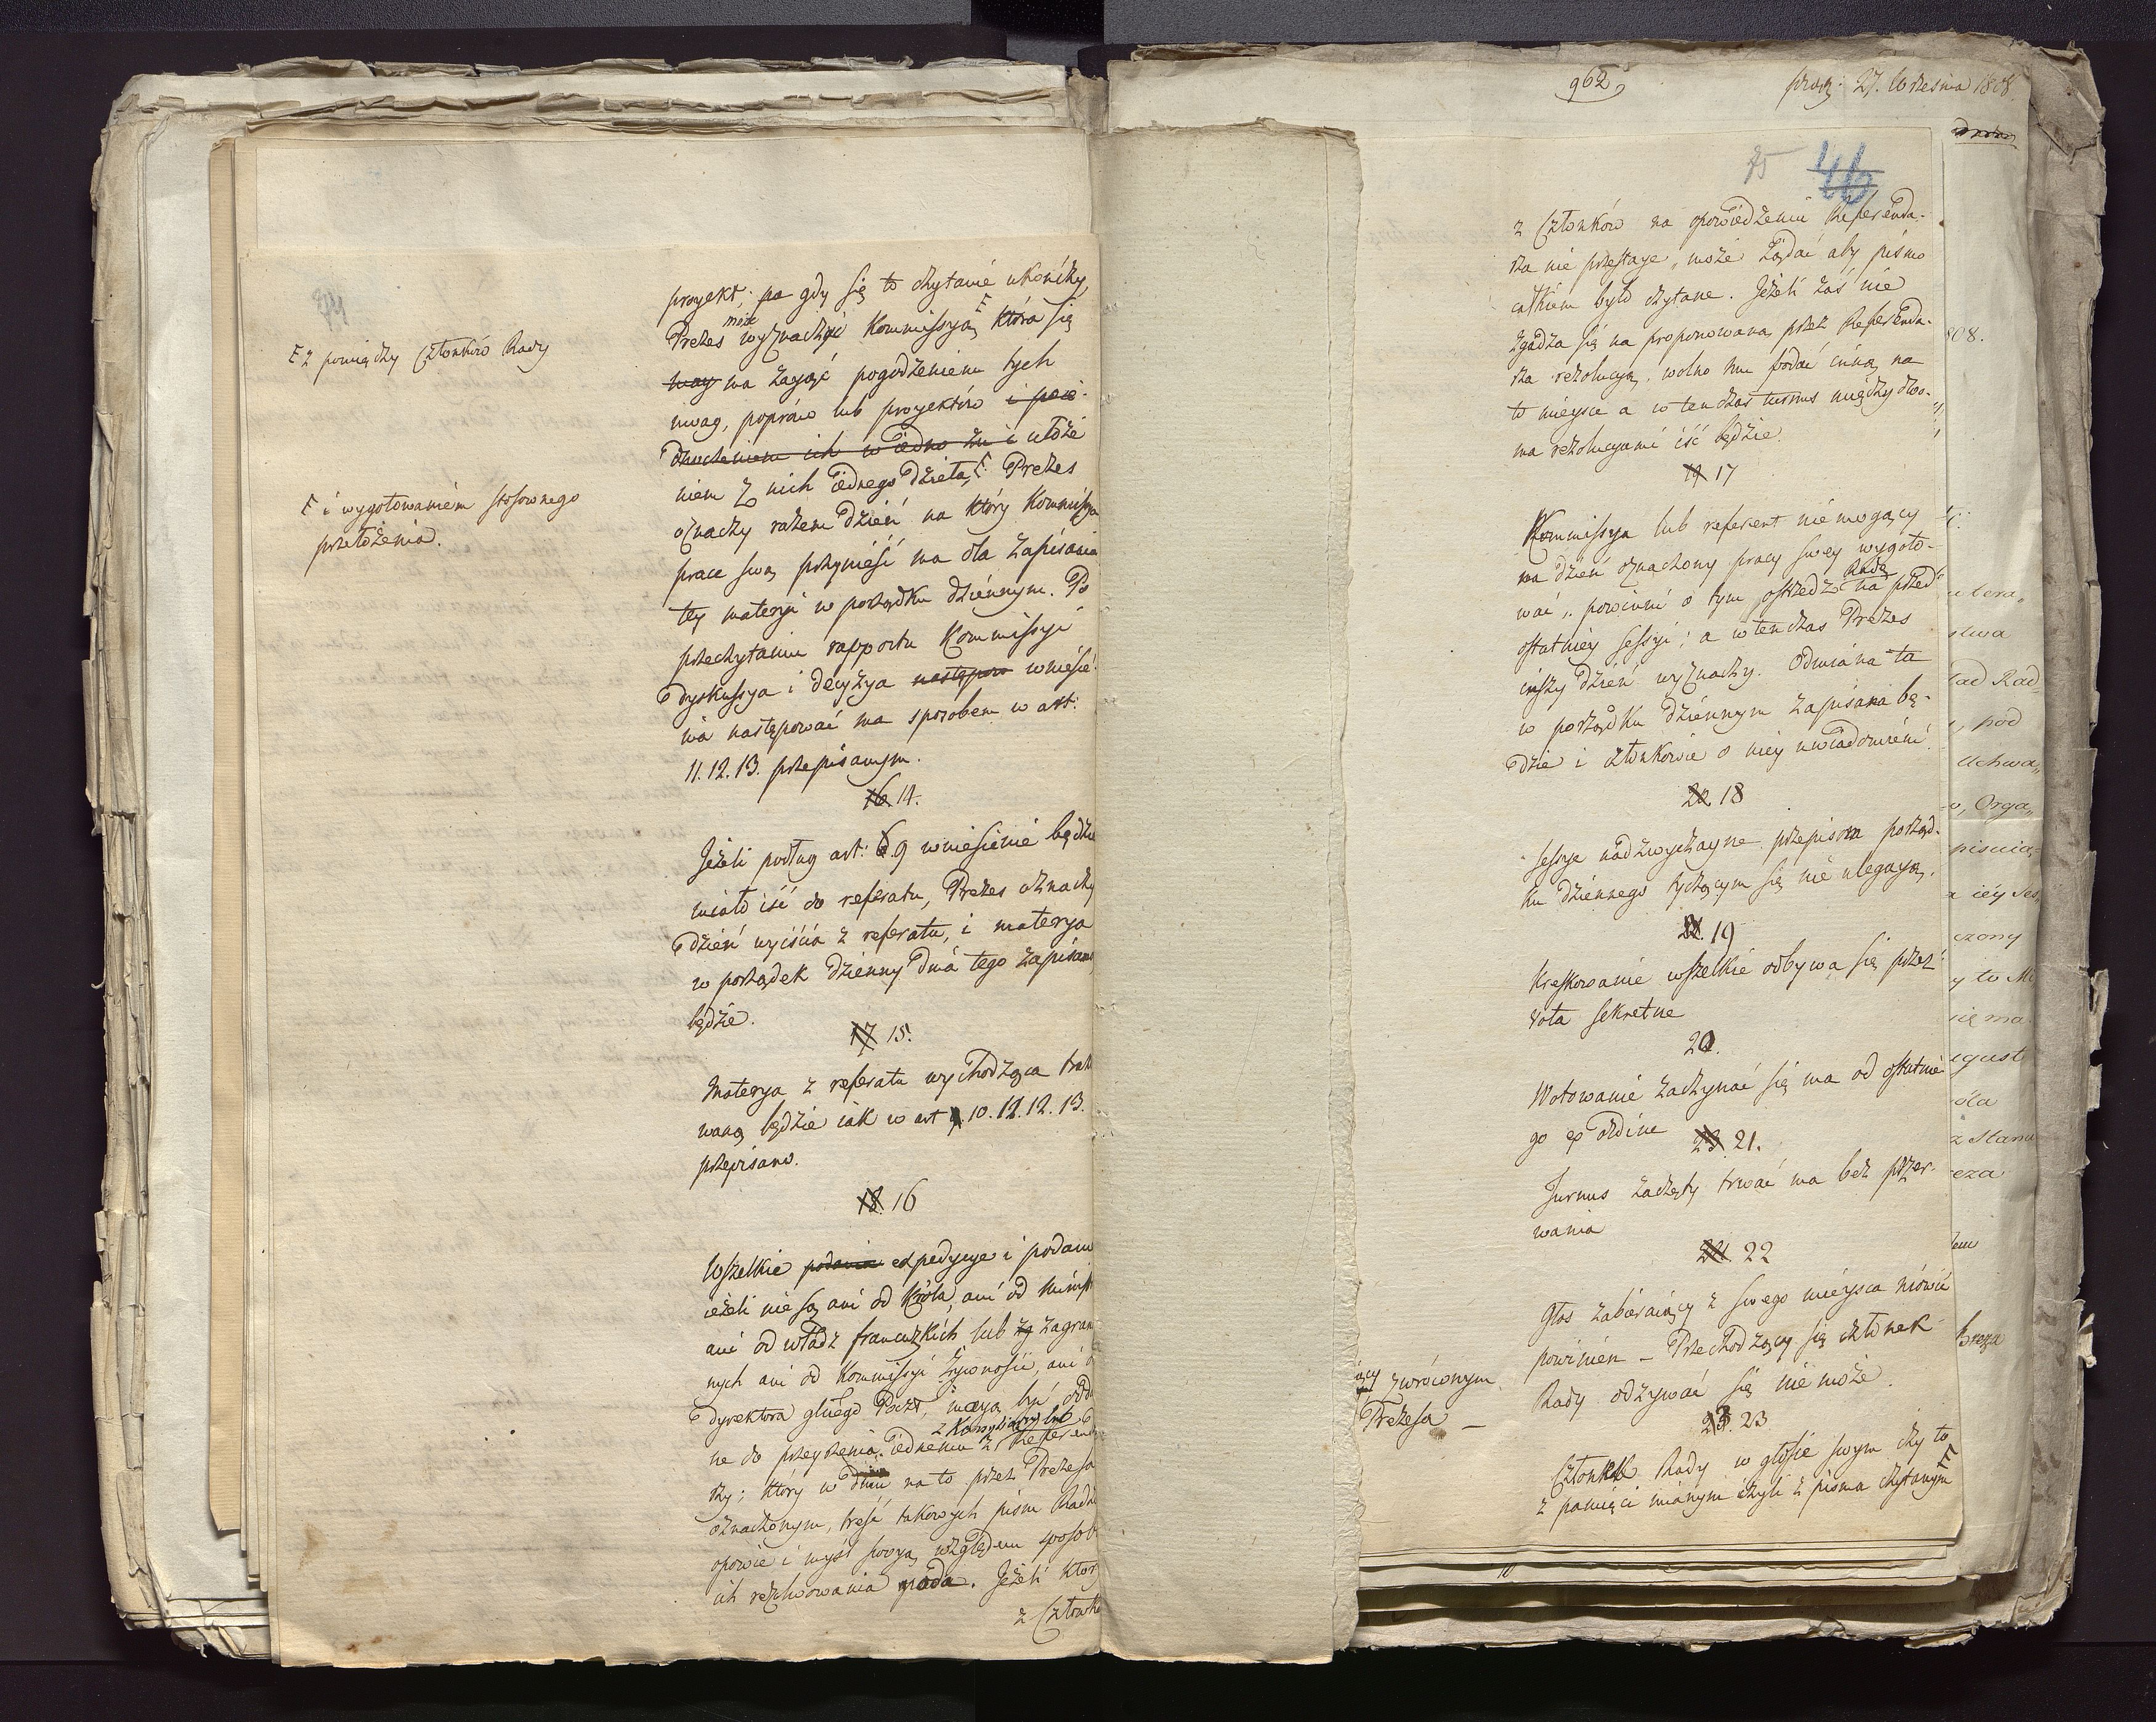 74
F z pomiędzy Członków Rady
F i wygotowaniem stosownego
przełożenia.
proyekt; po gdy się to czytanie ukończy,
może
Prezes wyznaczyć Kommissyą F która się
ma zająć pogodzeniem tych
uwag, popraw lub proyektów i poie-
dnoczeniem ich w iedno i ułoże
niem z nich iednego dzieła, F. Prezes
oznaczy razem dzień na który Kommissya
prace swą przynieść ma dla zapisania
tey materyi w porządku dziennym. Po
przeczytaniu rapportu Kommissyi
dyskussya i decyzya następow wniesie-
nia następować ma sposobem w art:
11. 12. 13. przepisanym.
16. 14.
Jeżeli podług art: 6. 9 wniesienie będzie
miało iść do referatu, Prezes oznaczy
dzień wyiścia z referatu, i materya
w porządek dzienny dnia tego zapisana
będzie.
17 15.
Materya z referatu wychodząca trakto
waną będzie iak w art 9. 10. 11. 12. 13.
przepisano.
18. 16
Wszelkie podania expedycye i podani
ieżeli nie są ani od Króla, ani od Minist
ani od władz francuzkich lub zg zagran
nych ani od Kommissyi Żywności, ani o
dyrektora głnego Poczt, maią być odda
z Konsyliarzy lub
ne do przeyrzenia iednemu z Referend
rzy; który w dniu na to przez Prezesa
oznaczonym, treść takowych pism Radzie
opowie i myśl swoią względem sposob
ich rezolwowania poda. Jeżeli który
z Członkó
962
praez: 27. Września 1808
75 46
z Członków na opowiedzeniu Referenda-
rza nie przestaye, może żądać aby pismo
całkiem było czytane. Jeżeli zaś nie
zgadza się na proponowaną przez Referenda-
rza rezolucyą, wolno mu podać inną na
to mieysce a w tenczas turnus między dwo-
ma rezolucyami iść będzie.
19 17
Kommissya lub referent nie mogący
na dzień oznaczony pracy swey wygoto-
Radę
wać, powinni o tym ostrzedz na przed
ostatniey sessyi; a w tenczas Prezes
inszy dzień wyznaczy. Odmiana ta
w porządku dziennym zapisana bę-
dzie i członkowie o niey uwiadomieni
20. 18
Sessye nadzwyczayne przepisom porząd-
ku dziennego tyczącym się nie ulegaią.
21. 19
Kreskowanie wszelkie odbywa się przez
wota sekretne
20.
Wotowanie zaczynać się ma od ostatnie
go ex ordine
23. 21.
Turnus zaczęty trwać ma bez przer-
wania
24. 22
Głos zabieraiący z swego mieysca mówić
powinien – Przechodzący się członek
Rady odzywać się nie może.
23
Członek Rady w głosie swym czy to
z pamięci mianym czyli z pisma czytanym F
zwróconym
Prezesa –
808.
stwa
pod
Uchwa„
Orga„
iey Ses
czony
y to Mi
się ma
ugust
dla
z Stanu
eza
Breza